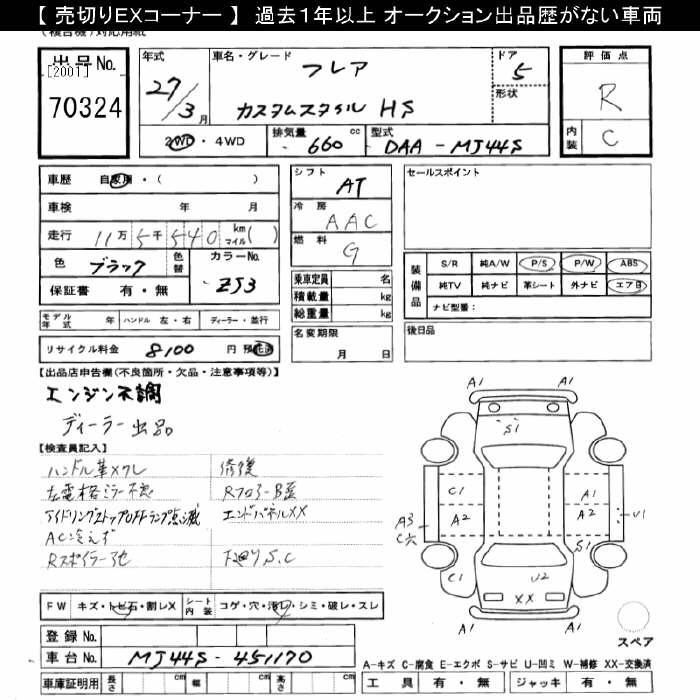 【 売切りEXコーナー 】 過去1年以上 オークション出品歴がない車両
(複合機)対応用紙
出品No.
[2001]
70324
年式
27/3月
車名・グレード
フレア
カスタムスタイル HS
ドア
5
形状
2WD・4WD
排気量 660 cc
型式 DAA - MJ44S
評価点
R
内装 C
車歴 自家用・( )
車検 年 月
走行 11万5千540 km マイル( )
色 ブラック
色替
カラーNo. ZJ3
保証書 有・無
モデル年式 年
ハンドル 左・右
ディーラー・並行
リサイクル料金 8100 円 預託済
シフト AT
冷房 AAC
燃料 G
乗車定員 名
積載量 kg
総重量 kg
名変期限
月 日
セールスポイント
装備品
S/R 純A/W P/S P/W ABS
純TV 純ナビ 革シート 外ナビ エアB
ナビ型番:
後日品
【出品店申告欄(不良箇所・欠品・注意事項等)】
エンジン不調
ディーラー出品
【検査員記入】
ハンドル革メクレ
左電格ミラー不良
アイドリングストップOFFランプ点滅
AC冷えず
Rスポイラー
修復
Rフロアー
エンドパネルXX
下廻りS.C
FW キズ・トビ石・割レX
シート内装 コゲ・穴・汚レ・シミ・破レ・スレ
登録No.
車台No. MJ44S - 451170
車庫証明用 長さ cm 幅 cm 高さ cm
A1 A1
S1
C1 A1
A2 A2
A3
C穴
U1
S1
C1 U2
XX
A1 A1
スペア
A-キズ C-腐食 E-エクボ S-サビ U-凹ミ W-補修 XX-交換済
工具 有・無 ジャッキ 有・無